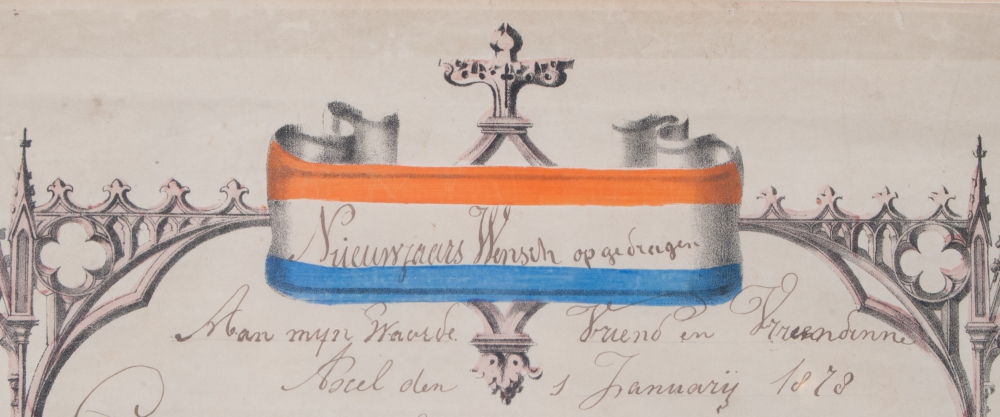 Nieuwjaars Wensch opgedragen
Aan mijn Waarde Vriend en Vreendinne
Axel den 1 Januarij 1878